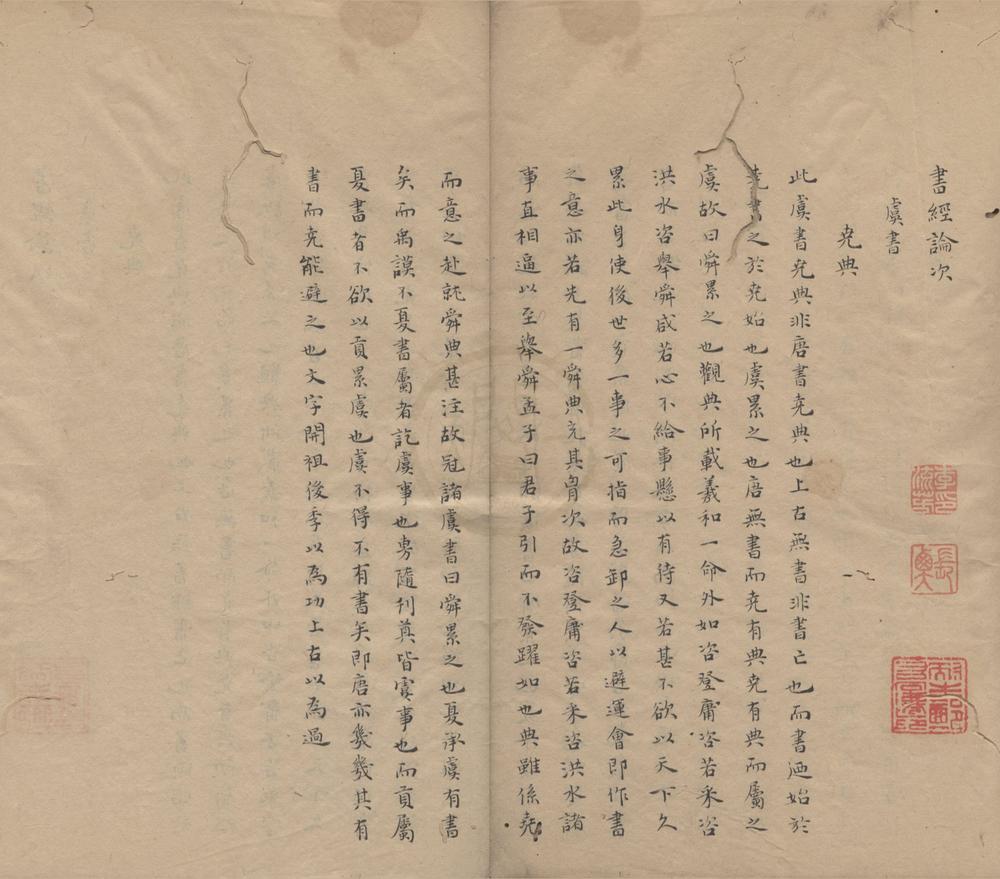 書經論次
虞書
堯典
此虞書堯典非唐書堯典也上古無書非書亡也而書迺始於
堯書之於堯始也虞累之也唐無書而堯有典堯有典而屬之
虞故曰舜累之也觀典所載羲和一命外如咨登庸咨若采咨
洪水咨舉舜咸若心不給事懸以有待又若甚不欲以天下久
累此身使後世多一事之可指而急卸之人以避運會即作書
之意亦若先有一舜典亢其胷次故咨登庸咨若采咨洪水諸
事直相逼以至舉舜孟子曰君子引而不發躍如也典雖係堯
而意之赴就舜典甚注故冠諸虞書曰舜累之也夏承虞有書
矣而禹謨不夏書屬者訖虞事也旉隨刊奠皆虞事也而貢屬
夏書者不欲以貢累虞也虞不得不有書矣即唐亦幾幾其有
書而堯能避之也文字開祖後季以為功上古以為過